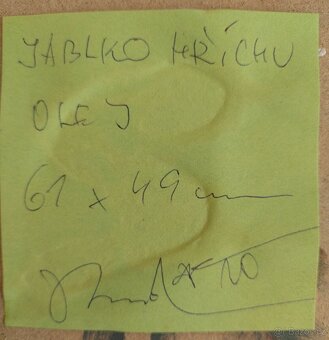 JABLKO HŘÍCHU
OLEJ
61 x 49 cm